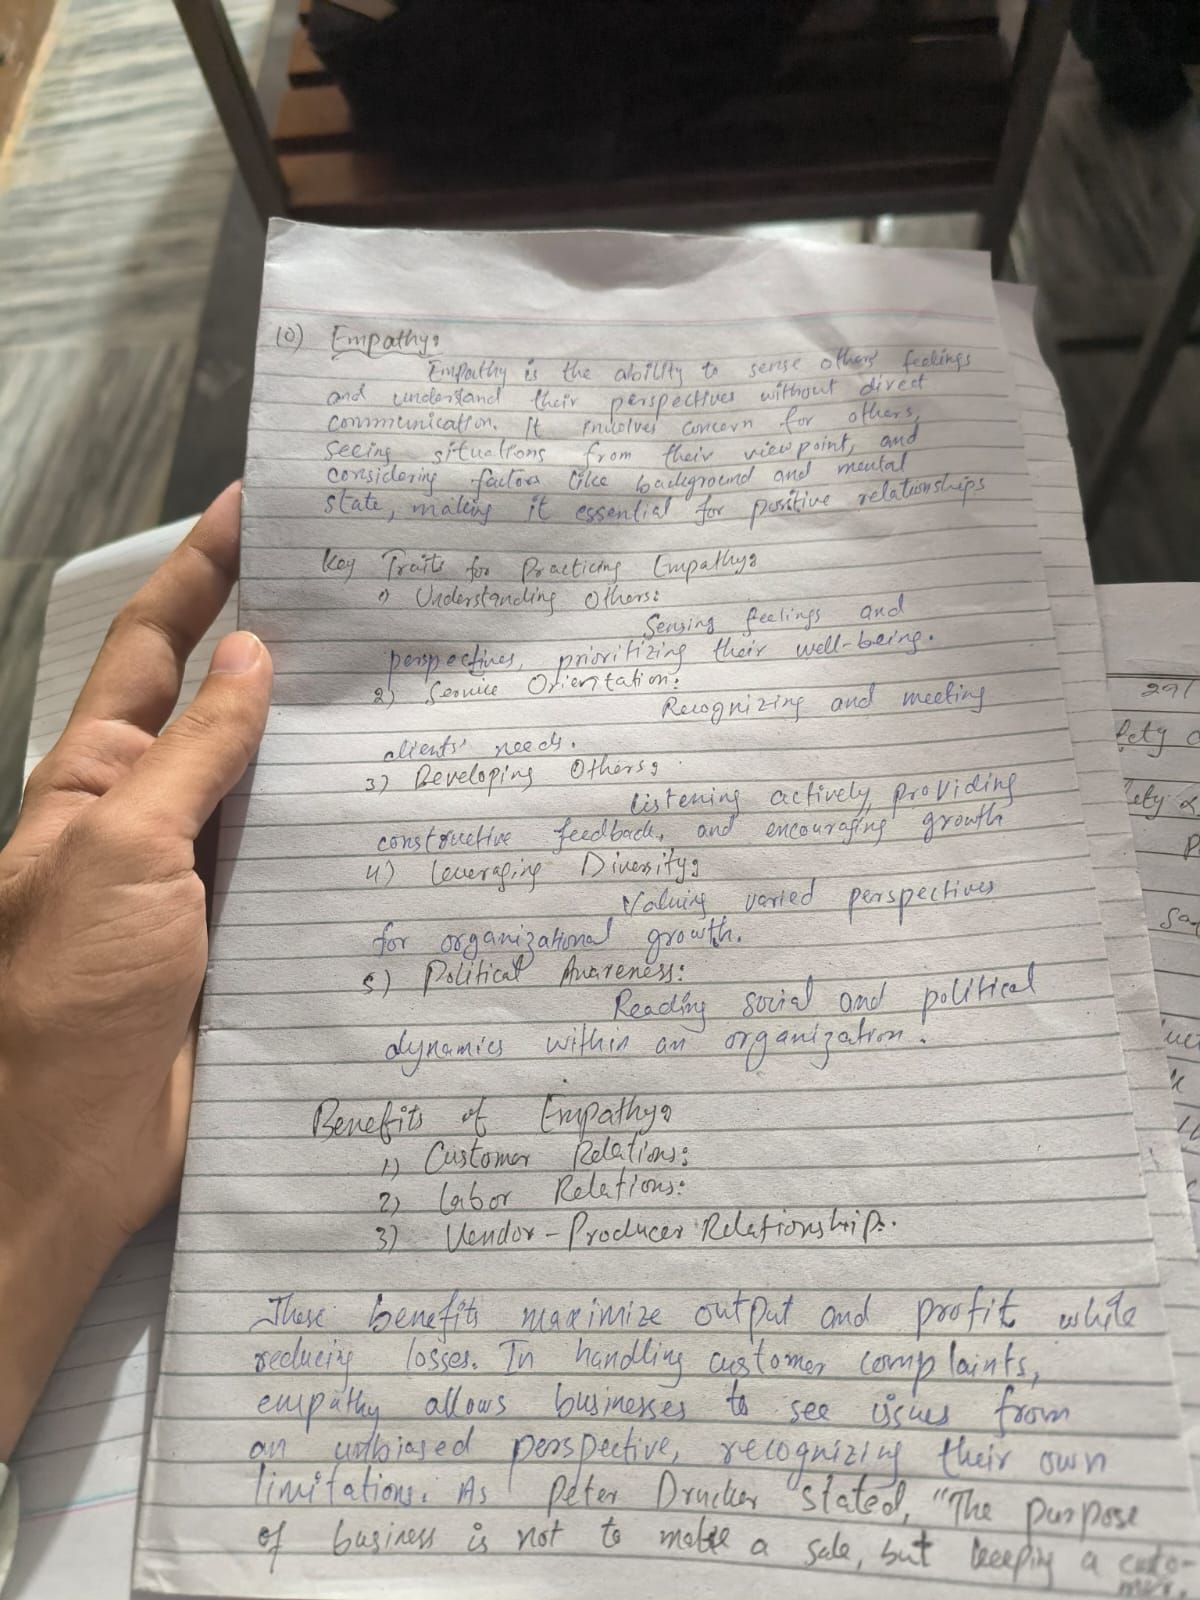 10) Empathy:
Empathy is the ability to sense others' feelings
and understand their perspectives without direct
communication. It involves concern for others,
seeing situations from their viewpoint, and
considering factors like background and mental
state, making it essential for positive relationships
Key Traits for Practicing Empathy:
1) Understanding Others:
Sensing feelings and
perspectives, prioritizing their well-being.
2) Service Orientation:
Recognizing and meeting
clients' needs.
3) Developing Others:
Listening actively, providing
constructive feedback, and encouraging growth
4) Leveraging Diversity:
Valuing varied perspectives
for organizational growth.
5) Political Awareness:
Reading social and political
dynamics within an organization.
Benefits of Empathy:
1) Customer Relations:
2) Labor Relations:
3) Vendor-Producer Relationship:.
These benefits maximize output and profit while
reducing losses. In handling customer complaints,
empathy allows businesses to see issues from
an unbiased perspective, recognizing their own
limitations. As Peter Drucker stated, "The purpose
of business is not to make a sale, but keeping a custo-
mer.
291
fety